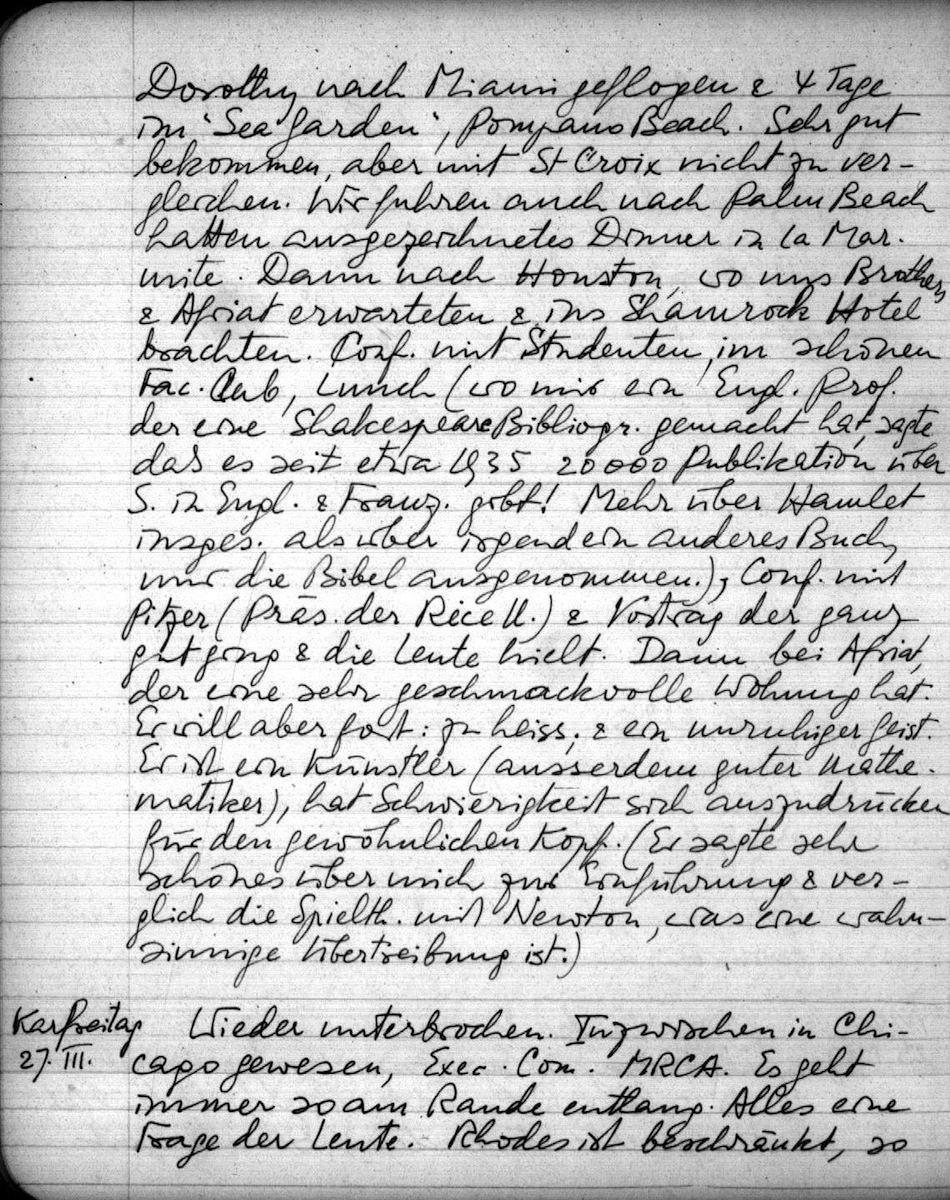 Dorothy nach Miami geflogen & 4 Tage
im 'Sea Garden', Pompano Beach. Sehr gut
bekommen, aber mit St Croix nicht zu ver-
gleichen. Wir fuhren auch nach Palm Beach
hatten ausgezeichnetes Dinner in La Mar-
mite. Dann nach Houston, wo uns Brothers
& Afriat erwarteten & ins Shamrock Hotel
brachten. Conf. mit Studenten, im schönen
Fac. Club, Lunch (wo mir ein Engl. Prof.
der eine Shakespeare Bibliogr. gemacht hat, sagte
dass es seit etwa 1935 20000 Publikation über
S. in Engl. & Franz. gibt! Mehr über Hamlet
insges. als über irgend ein anderes Buch,
nur die Bibel ausgenommen.), Conf. mit
Pitzer (Präs. der Rice U.) & Vortrag der ganz
gut ging & die Leute hielt. Dann bei Afriat,
der eine sehr geschmackvolle Wohnung hat.
Er will aber fort: zu heiss, & ein unruhiger Geist.
Er ist ein Künstler (ausserdem guter Mathe-
matiker), hat Schwierigkeit sich auszudrücken
für den gewöhnlichen Kopf. (Er sagte sehr
schönes über mich zur Einführung & ver-
glich die Spielth. mit Newton, was eine wahn-
sinnige Übertreibung ist.)
Karfreitag Wieder unterbrochen. Inzwischen in Chi-
27. III. cago gewesen, Exec. Com. MRCA. Es geht
immer so am Rande entlang. Alles eine
Frage der Leute. Rhodes ist beschränkt, so